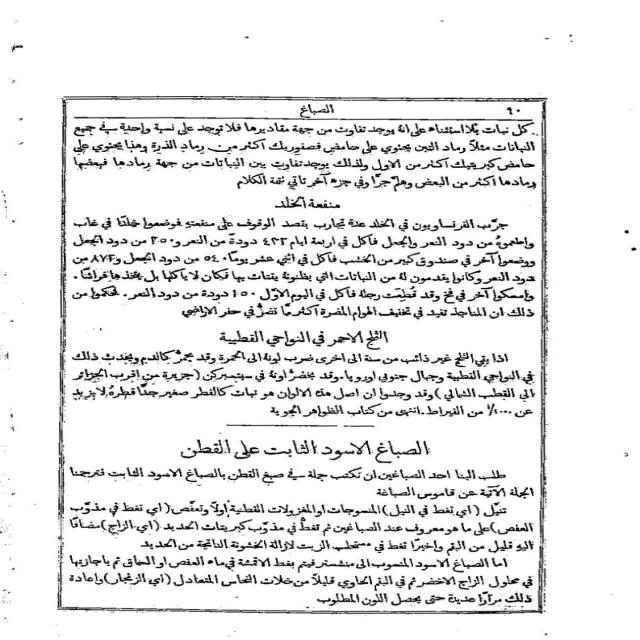 ٦٠ الصباغ
كل نبات بلا استثناء على انه يوجد تفاوت من جهة مقاديرها فلا توجد على نسبة واحدة في جميع
النباتات مثلاً رماد التبن يحتوي على حامض فصفوريك اكثر من رماد الذرة وهذا يحتوي على
حامض كبريتيك اكثر من الاول ولذلك يوجد تفاوت بين النباتات من جهة رمادها فبعضها
رمادها اكثر من البعض وهلم جرا وفي جزء آخر تأتي تتمة الكلام
منفعة الخلد
جرّب الفرنساويون في الخلد عدة تجارب بقصد الوقوف على منفعته فوضعوا خلدًا في غاب
واطعموهُ من دود النعر والجعل فاكل في اربعة ايام ٤٣٢ دودة من النعر و٢٥٠ من دود الجعل
ووضعوا آخر في صندوق كبير من الخشب فاكل في اثني عشر يومًا ٥٤٠ من دود الجعل و٨٧٢ من
دود النعر وكانوا يقدمون له من النباتات التي يظنونه يقتات بها فكان لا ياكلها بل يتخذها فراشًا.
وامسكوا آخر في فخ وقد قُطعت رجله فاكل في اليوم الاول ١٥٠ دودة من دود النعر. فحكموا من
ذلك ان المناجذ تفيد في تخفيف الهوام المضرة اكثر ما تضرّ في حفر الاراضي
الثلج الاحمر في النواحي القطبية
اذا بقي الثلج غير ذائب من سنة الى اخرى ضرب لونه الى الحمرة وقد يحمرّ كالدم ويحدث ذلك
في النواحي القطبية وجبال جنوبي اوروبا. وقد يخضرّ لونه في سبتسبركن (جزيرة من اقرب الجزائر
الى القطب الشمالي) وقد وجدوا ان اصل هذه الالوان هو نبات كالفطر صغير جدًّا قطرهُ لا يزيد
عن ١/١٠٠٠ من القيراط. انتهى من كتاب الظواهر الجوية
الصباغ الاسود الثابت على القطن
طلب الينا احد الصباغين ان نكتب جملة في صبغ القطن بالصباغ الاسود الثابت فترجمنا
الجملة الآتية عن قاموس الصباغة
تنيّل (اي تغط في النيل) المنسوجات او المغزولات القطنية اولاً وتعفّص (اي تغط في مذوّب
العفص) على ما هو معروف عند الصباغين ثم تغطّ في مذوّب كبريتات الحديد (اي الزاج) مضافًا
اليهِ قليل من البقم واخيرًا تغط في مستحلب الزيت لازالة الخشونة الناتجة من الحديد
اما الصباغ الاسود المنسوب الى منشستر فيتم بغط الاقمشة في ماء العفص او السماق ثم باجازتها
في محلول الزاج الاخضر ثم في البقم الحاوي قليلاً من خلات النحاس المتعادل (اي الزنجار) واعادة
ذلك مرارًا عديدة حتى يحصل اللون المطلوب